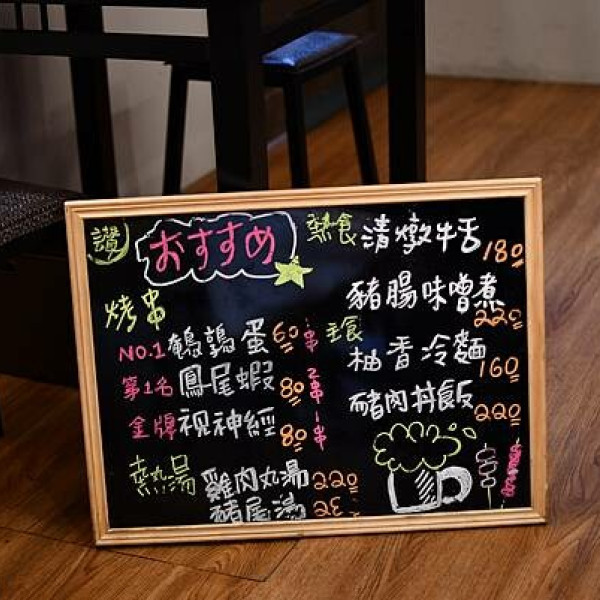 讚
おすすめ
烤串
NO.1 鵪鶉蛋 60 串
第1名 鳳尾蝦 80 2串
金牌 視神經 80 一串
熱湯 雞肉丸湯 220
豬尾湯
熱食 清燉牛舌 180
豬腸味噌煮 220
主食 柚香冷麵 160
豬肉丼飯 220